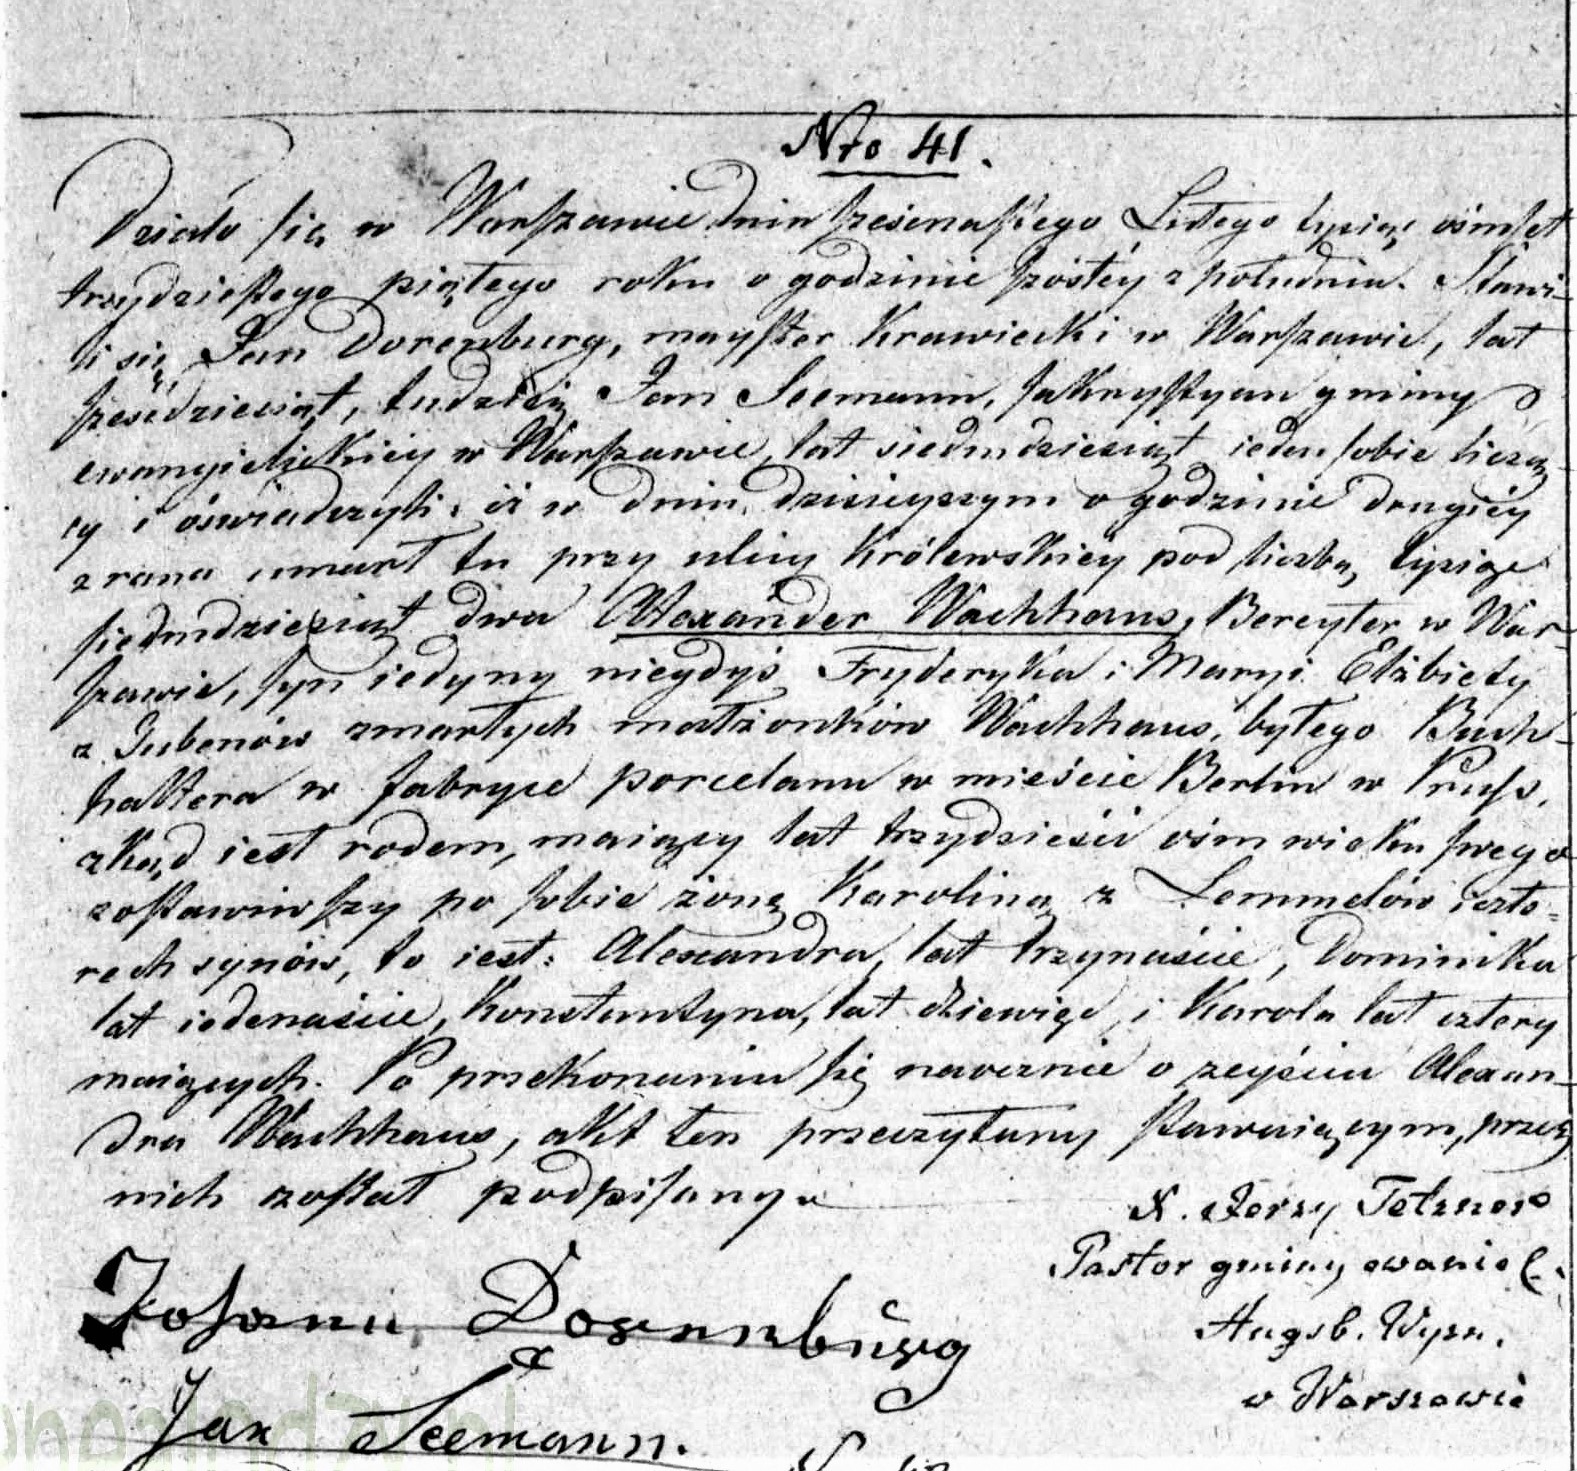 Nro 41.
Działo się w Warszawie dnia szesnastego Lutego tysiąc ośmset
trzydziestego piątego roku o godzinie szóstéy z południa. Stawi-
li się Jan Dorenburg, mayster Krawiecki w Warszawie, lat
sześćdziesiąt, tudzież Jan Seemann, sakrystyan gminy
ewangielickiey w Warszawie, lat siedmdziesiąt ieden sobie licząc
cy i oświadczyli, iż w dniu dzisieyszym o godzinie drugiéy
z rana umarł tu przy ulicy Królewskiéy pod liczbą tysiąc
siedmdziesiąt dwa Alexander Wachhaus, Bereyter w War-
szawie, syn iedyny niegdyś Fryderyka i Maryi Elżbiety
z zmarłych małżonków Wachhaus, byłego Buch-
haltera w fabryce porcelanu w mieście Berlin w Pruss,
zkąd iest rodem, maiący lat trzydzieści ośm wieku swego
zostawiwszy po sobie żonę Karolinę z Lemmelów i czte-
rech synów, to iest: Alexandra, lat trzynaście, Dominika
lat iedenaście, Konstantyna, lat dziewięć, i Karola lat cztery
maiących. Po przekonaniu się naocznie o zeyściu Alexan-
dra Wachhaus, akt ten przeczytany stawaiącym, przez
nich został podpisany.
X. Jerzy Tetzner
Pastor gminy ewaniel.
Augsb. Wyzn.
w Warszawie
Johann Dorenburg
Jan Seemann.